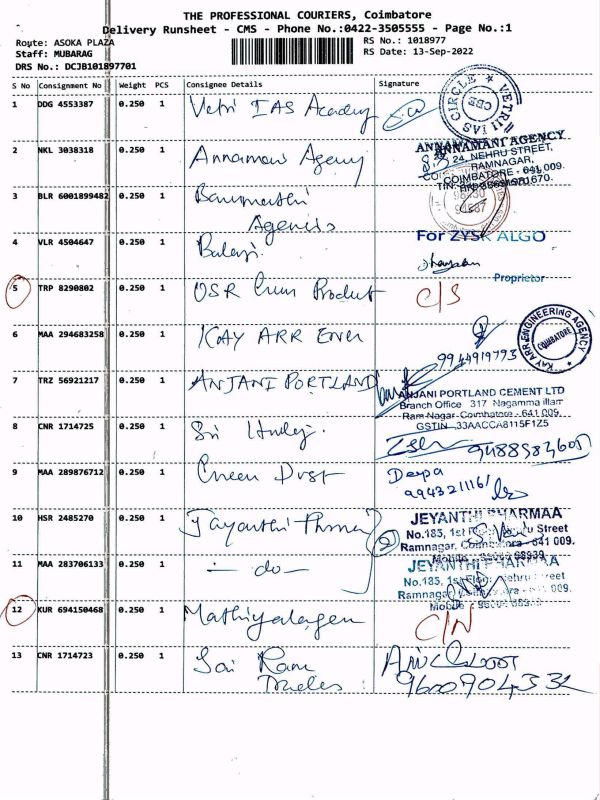 THE PROFESSIONAL COURIERS, Coimbatore
Delivery Runsheet - CMS - Phone No.:0422-3505555 - Page No.:1
Route: ASOKA PLAZA
RS No.: 1018977
Staff: MUBARAG
RS Date: 13-Sep-2022
DRS No.: DCJB101897701
S No Consignment No Weight PCS Consignee Details Signature
1 DDG 4553387 0.250 1 Vetri IAS Academy
VETRII IAS CIRCLE CBE
2 NKL 3038318 0.250 1 Annamani Agency
ANNAMANI AGENCY
24, NEHRU STREET,
RAMNAGAR,
COIMBATORE - 641 009.
3 BLR 6001899482 0.250 1
Agencis
4 VLR 4504647 0.250 1 Balaji.
For ZYSK ALGO
Proprietor
5 TRP 8290802 0.250 1 OSR Product C/S
6 MAA 294683258 0.250 1 KAY ARR Ener
9944919793
KAY ARR ENGINEERING AGENCY COIMBATORE
7 TRZ 56921217 0.250 1 ANJANI PORTLAND
ANJANI PORTLAND CEMENT LTD
Branch Office 317 Nagamma illam
Ram Nagar Coimbatore - 641 009.
GSTIN 33AACCA8115F1Z5
8 CNR 1714725 0.250 1 Sri
9488983605
9 MAA 289876712 0.250 1 Green Dust Deepa
9943211161
10 HSR 2485270 0.250 1 Jayanthi Pharma 2
JEYANTHI PHARMAA
No.185, 1st Floor, Nehru Street
Ramnagar, Coimbatore - 641 009.
11 MAA 283706133 0.250 1 - do -
JEYANTHI PHARMAA
No.185, 1st Floor, Nehru Street
Ramnagar, Coimbatore - 641 009.
12 KUR 694150468 0.250 1 Mathiyalagan C/N
13 CNR 1714723 0.250 1 Sai Ram
Trades
9600904332